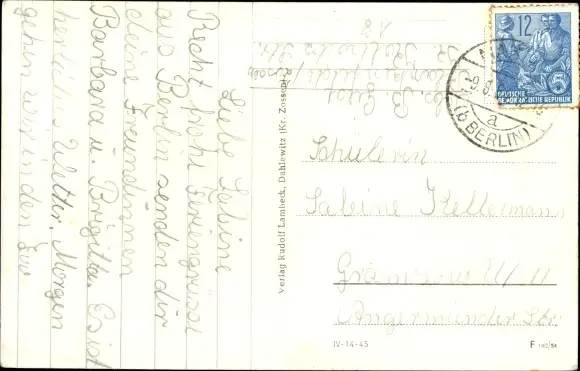 Liebe Sabine
Recht frohe Feriengrüsse
aus Berlin senden dir
deine Freundinnen
Barbara u. Brigitte. Es ist
herrlich Wetter. Morgen
gehen wir in den Zoo
12
DEUTSCHE
DEMOKRATISCHE REPUBLIK
a
(b BERLIN)
Verlag Rudolf Lambeck, Dahlewitz (Kr. Zossen)
Schülerin
Sabine Kellermann
Angermünder Str.
IV-14-45
F 140/54